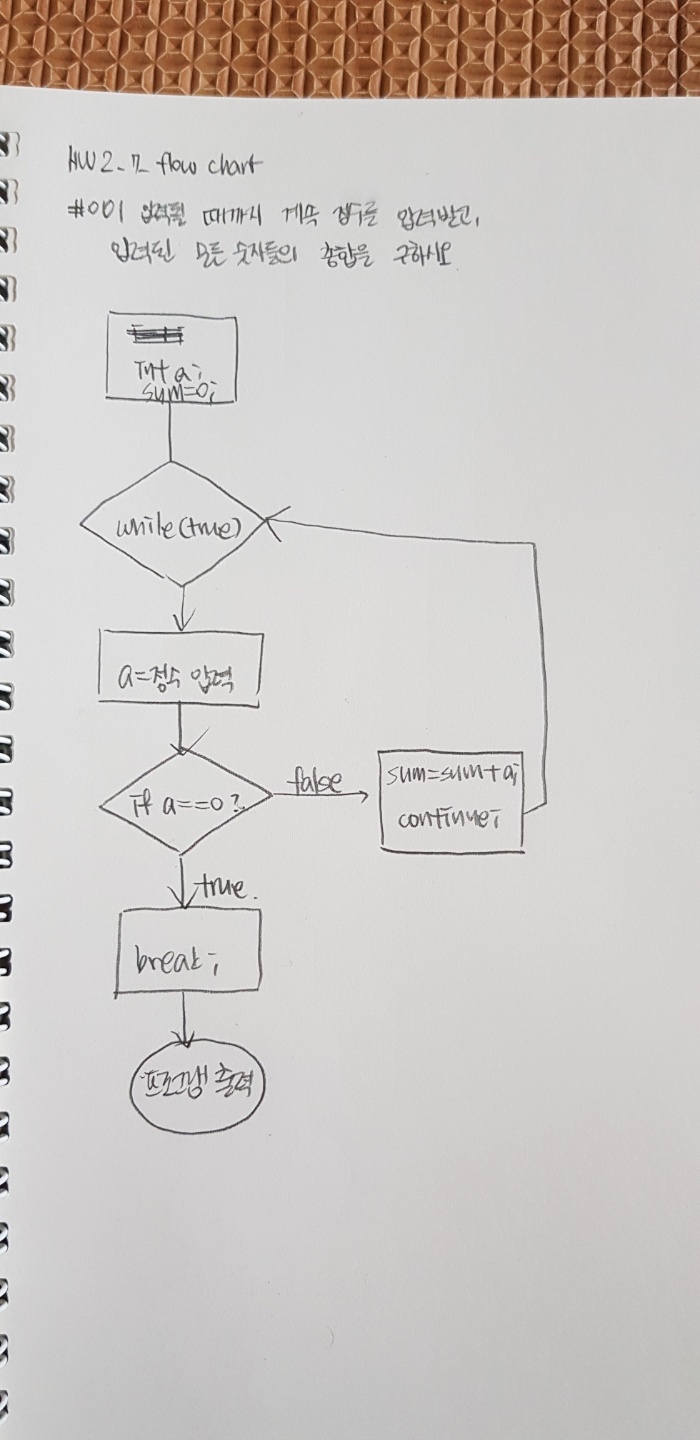 HW2-2 flow chart
#001 입력될 때까지 계속 정수를 입력받고,
입력된 모든 숫자들의 총합을 구하시오
Int a;
sum=0;
while(true)
a=정수 입력
if a==0?
false
sum=sum+a;
continue;
true.
break;
프로그램 출력